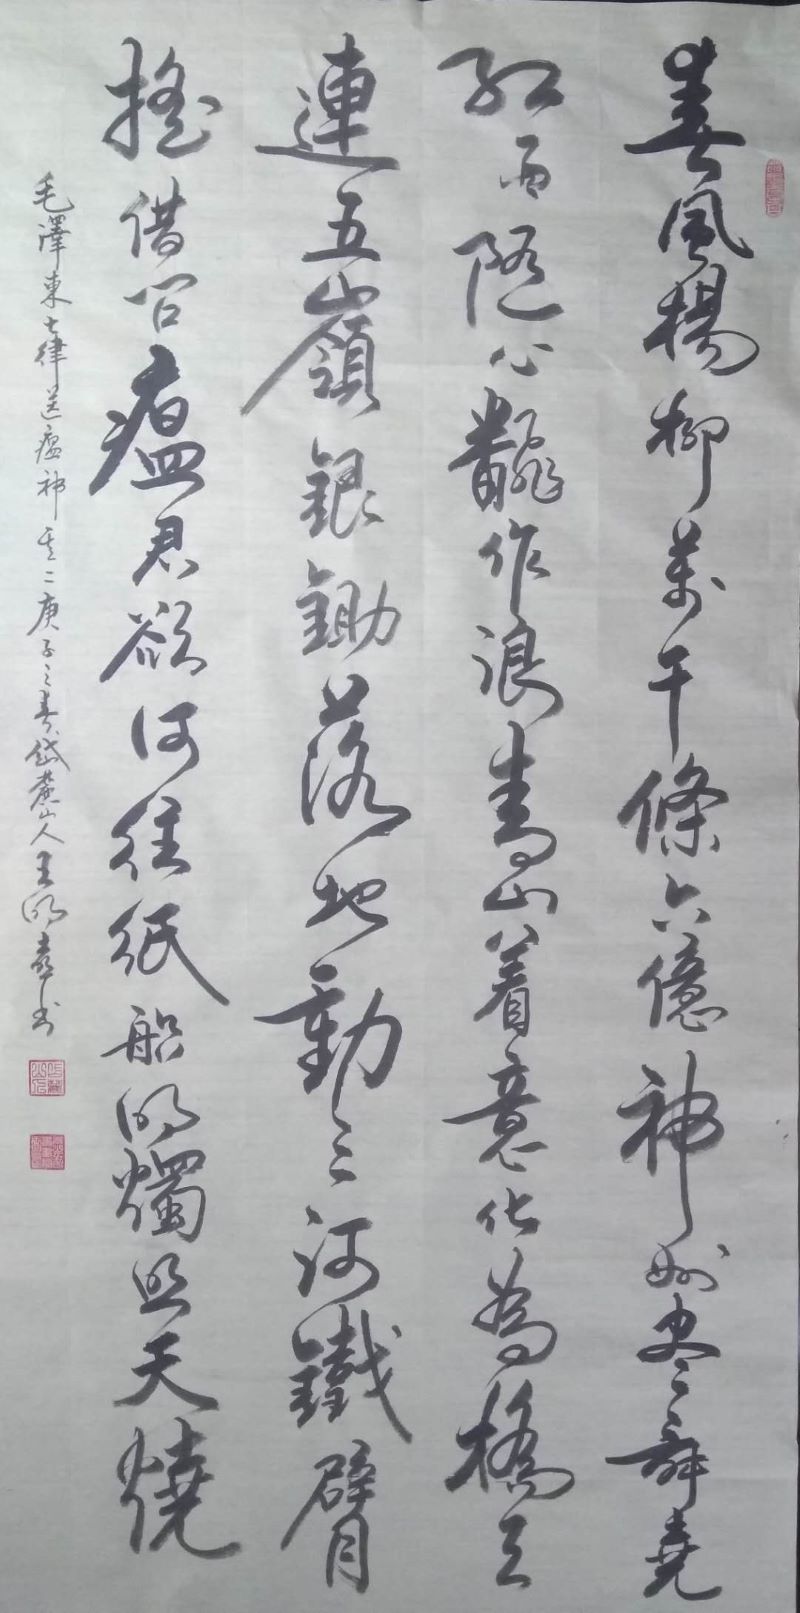 春風楊柳萬千條六億神州尽舜堯
紅雨隨心飜作浪青山着意化為橋天
連五嶺銀鋤落地動三河鐵臂
搖借问瘟君欲何往紙船明燭照天燒
毛澤東七律送瘟神其二庚子之春岱麓山人王明书